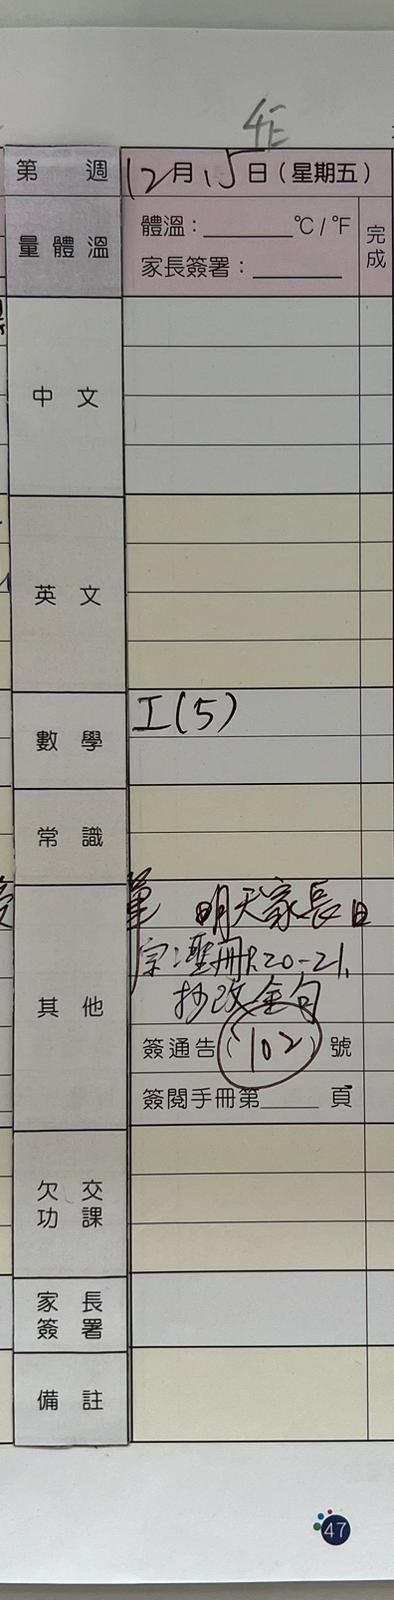 作
第 週 12月15日（星期五）
量體溫 體溫：______℃/℉ 完成
家長簽署：______
中 文
英 文
數 學 工(5)
常 識
單 明天家長日
宗：冊P.20-21,
其 他 抄改金句
簽通告（102）號
簽閱手冊第____頁
欠 交
功 課
家 長
簽 署
備 註
47